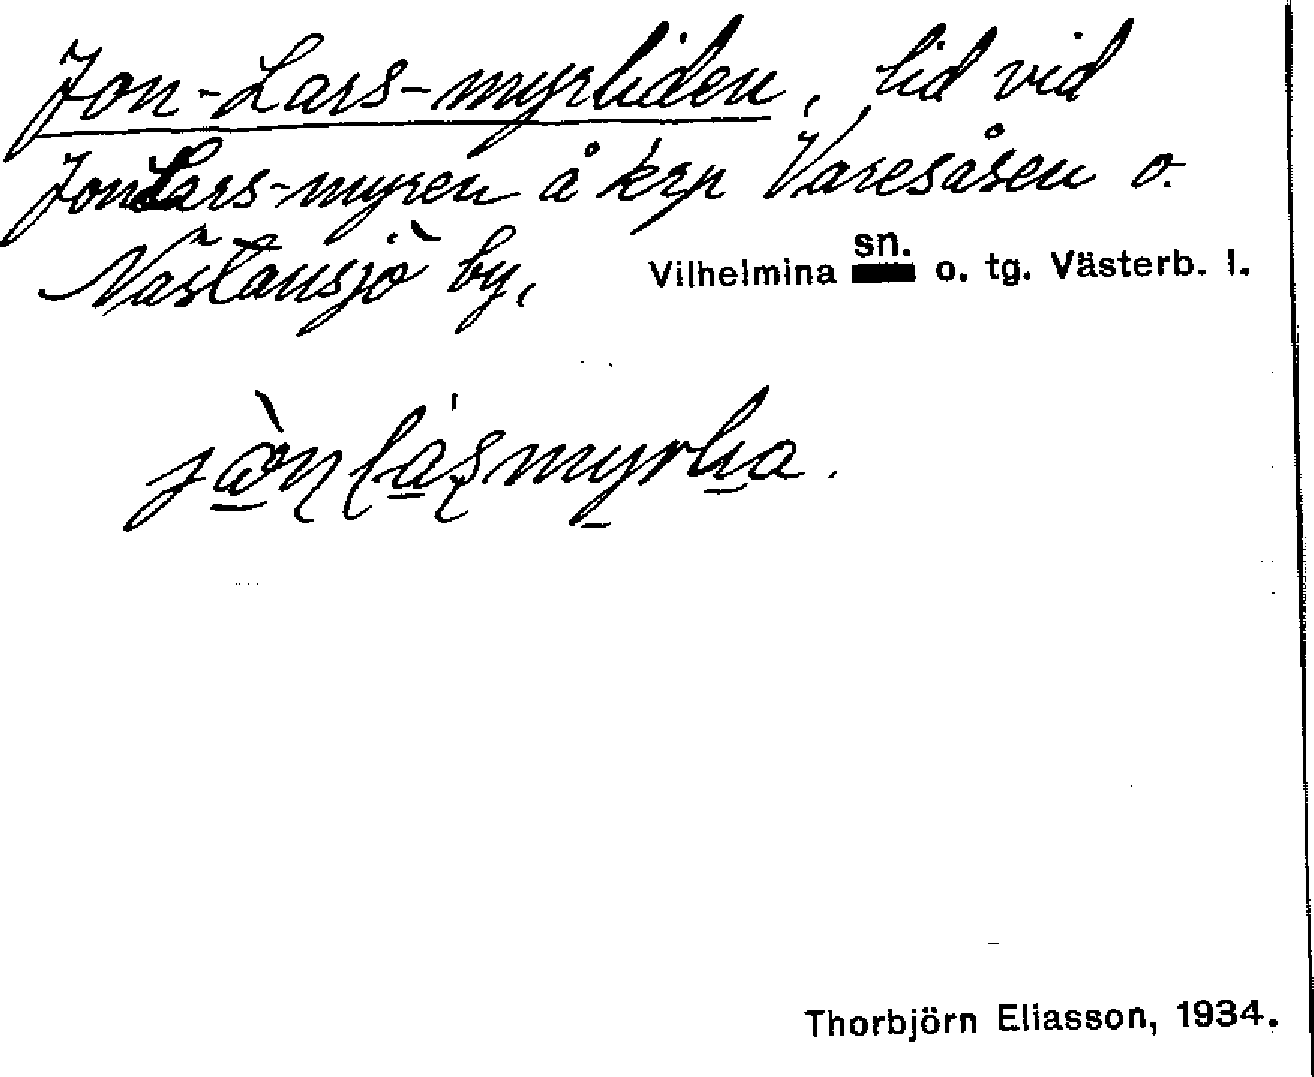 Jon-Lars-myrliden, lid vid
Jon Lars-myren å krp Varesåsen o.
Västansjö by, Vilhelmina sn. o. tg. Västerb. l.
Thorbjörn Eliasson, 1934.